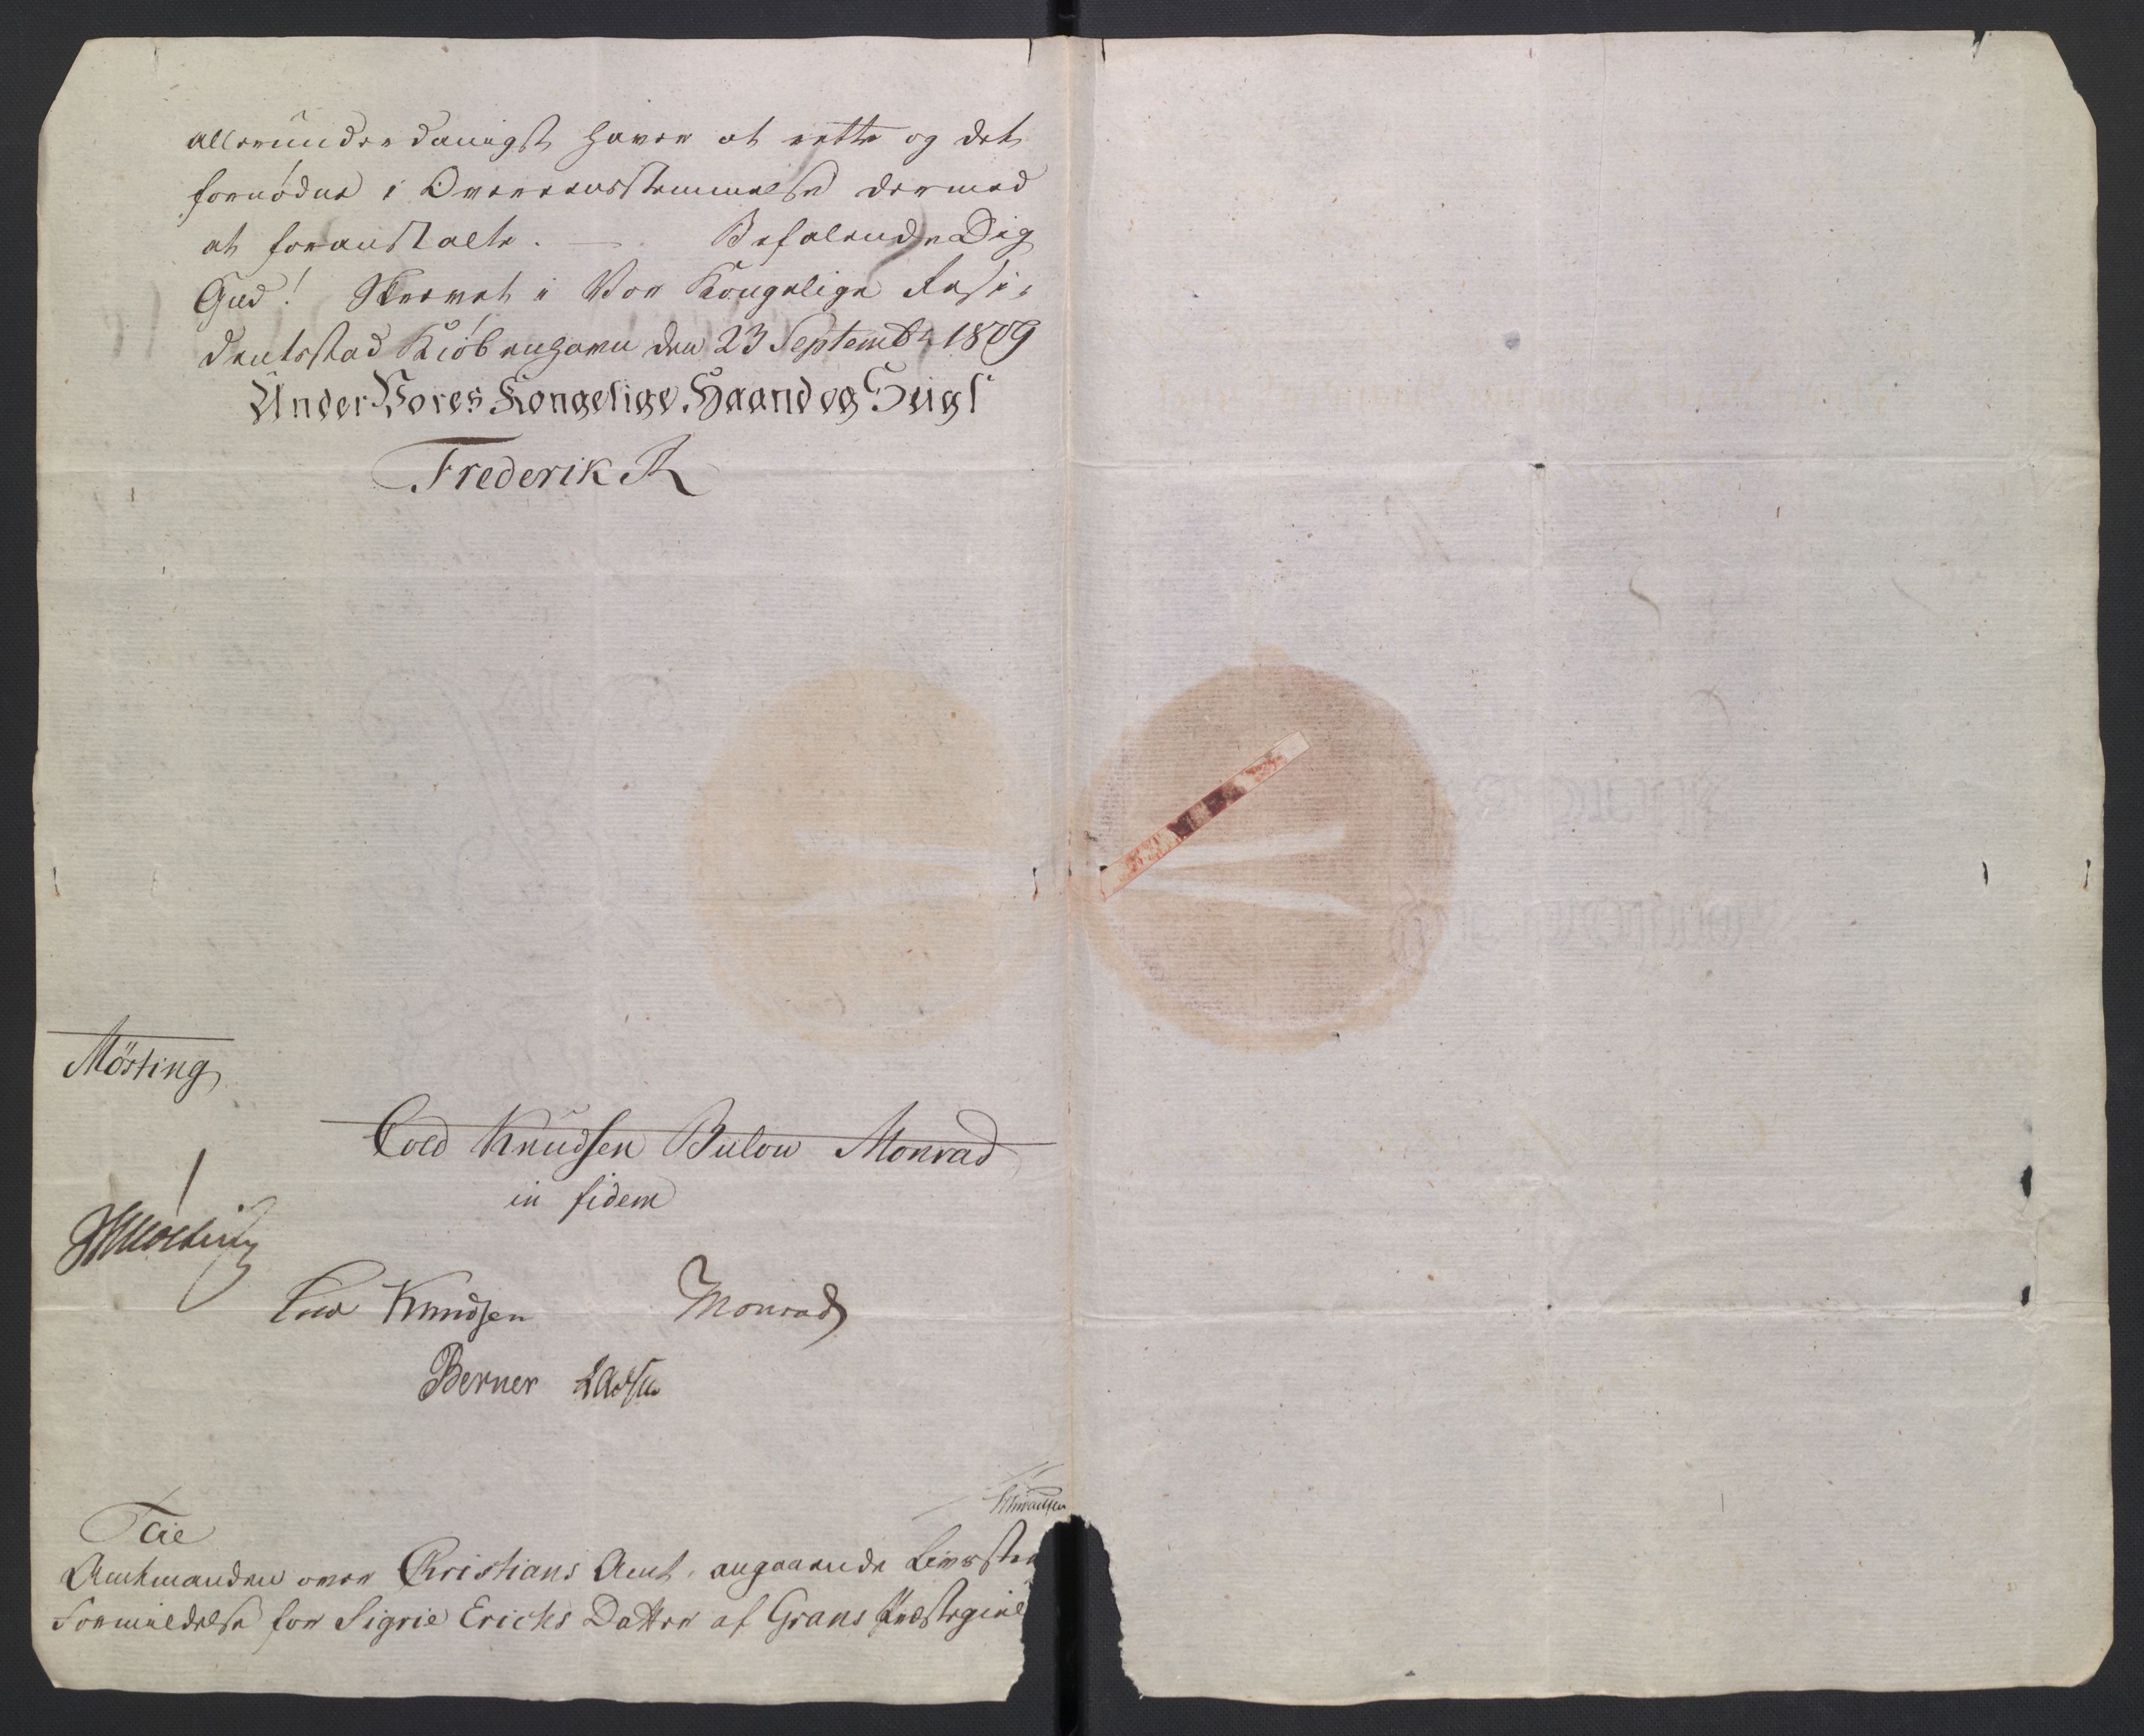 allerunderdanigst haver at rette og det
fornødne i Overeensstemmelse dermed
at foranstalte. — Befalende Dig
Gud! Skrevet i Vor Kongelige Resi-
dentsstad Kiøbenhavn den 23 Septembr 1809
Under Vores Kongelige Haand og Seigl
Frederik R
Mösting
Cold Knudsen Bülow Monrad
in fidem
JMösting
Cold Knudsen Monrad
Berner Lassen
Knudsen
Til
Amtmanden over Christians Amt, angaaende Livsstr
Formildelse for Sigrie Erichs Datter af Grans Præstegiel